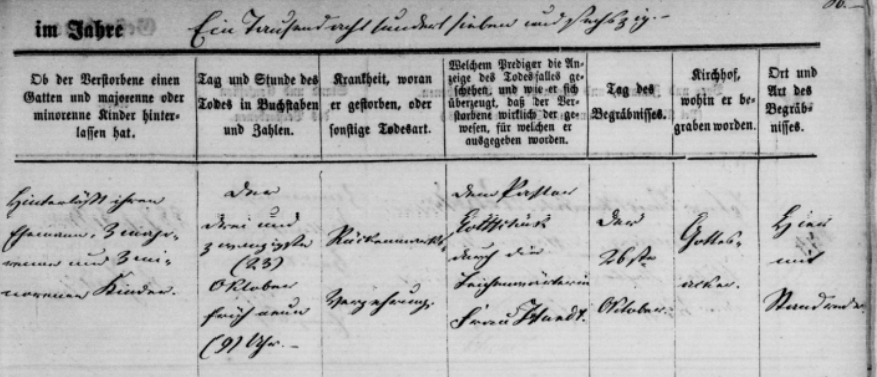 im Jahre Ein Tausend acht hundert sieben und sechszig.
Ob der Verstorbene einen
Gatten und majorenne oder
minorenne Kinder hinter-
lassen hat.
Tag und Stunde des
Todes in Buchstaben
und Zahlen.
Krankheit, woran
er gestorben, oder
sonstige Todesart.
Welchem Prediger die An-
zeige des Todesfalles ge-
schehen, und wie er sich
überzeugt, daß der Ver-
storbene wirklich der ge-
wesen, für welchen er
ausgegeben worden.
Tag des
Begräbnisses.
Kirchhof,
wohin er be-
graben worden.
Ort und
Art des
Begräb-
nisses.
Hinterläßt ihren
Ehemann, 3 majo-
renne und 3 mi-
norenne Kinder.
Der
drei und
zwanzigste
(23)
Oktober
früh neun
(9) Uhr.
Rückenmarks
Verzehrung.
dem Pastor
durch die
Leichenwärterin
Frau
Der
26ste
Oktober.
Gottes-
acker.
Hier
mit
Standrede.